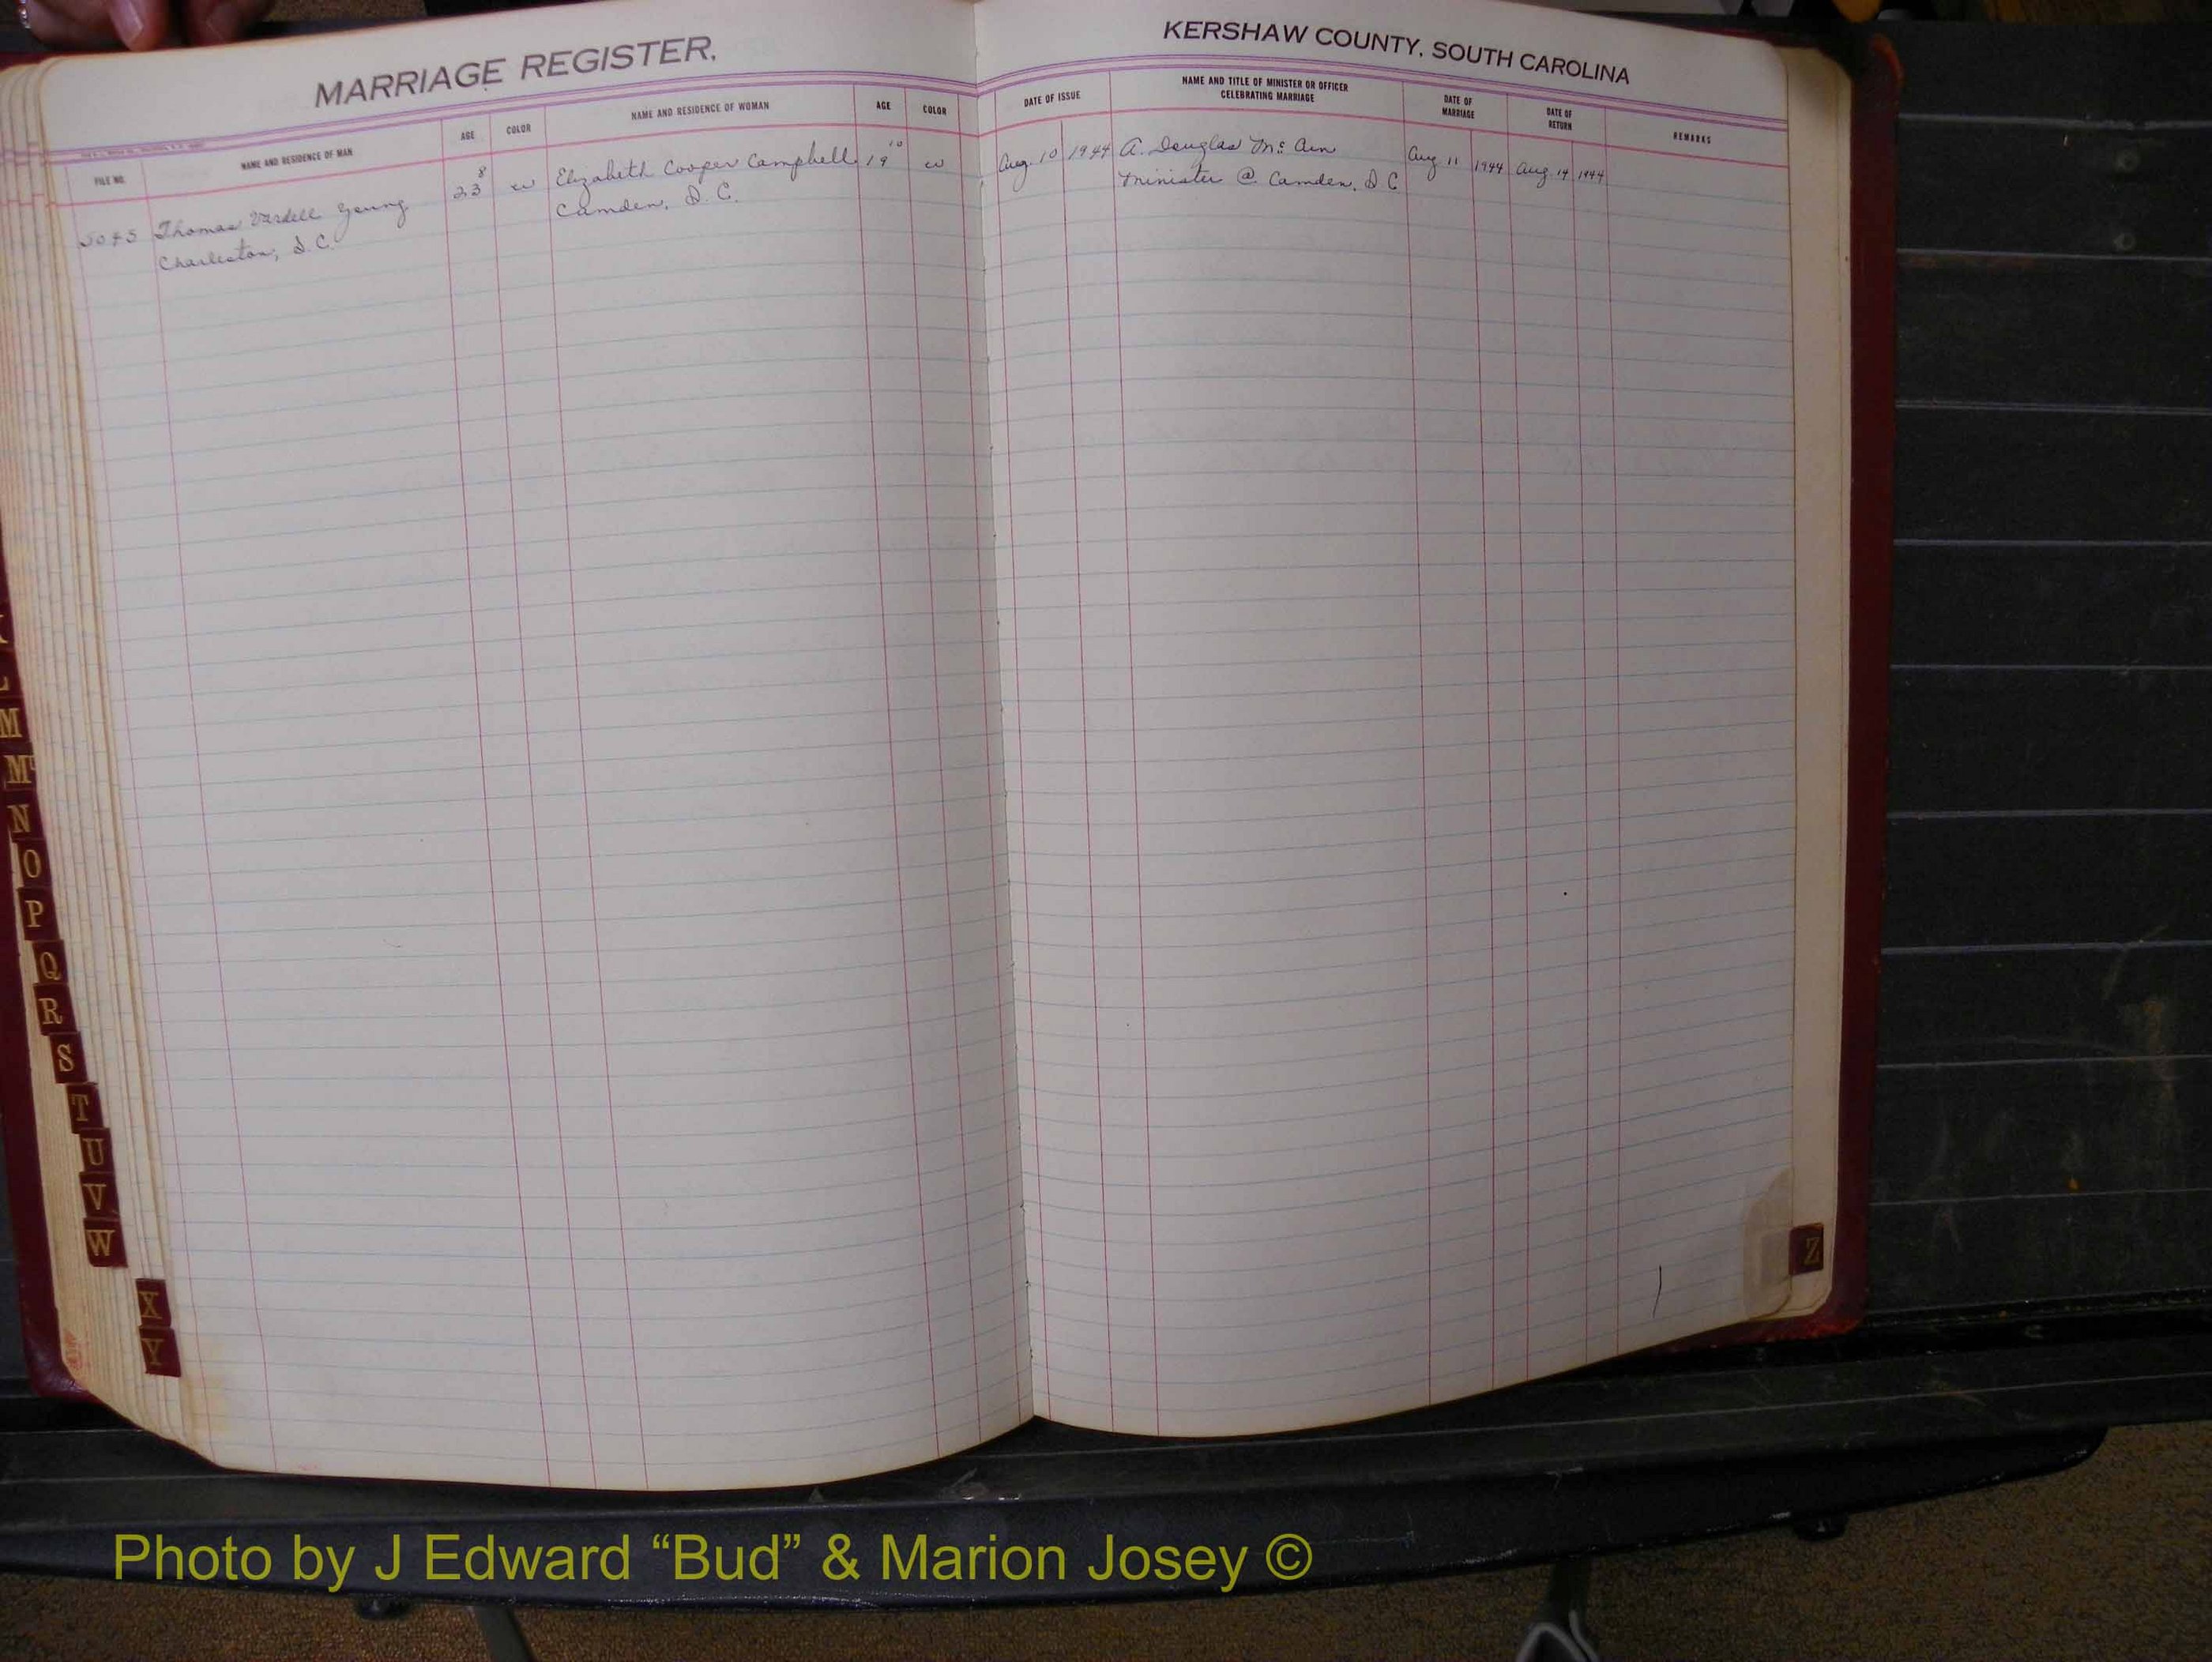 MARRIAGE REGISTER,
KERSHAW COUNTY, SOUTH CAROLINA
FILE NO.
NAME AND RESIDENCE OF MAN
AGE
COLOR
NAME AND RESIDENCE OF WOMAN
AGE
COLOR
DATE OF ISSUE
NAME AND TITLE OF MINISTER OR OFFICER
CELEBRATING MARRIAGE
DATE OF
MARRIAGE
DATE OF
RETURN
REMARKS
Thomas Vardell Young
Charleston, S.C.
8
23
w
Elizabeth Cooper Campbell
Camden, S.C.
10
19
w
Aug. 10 1944
A. Douglas Mc
Minister @ Camden, S C
Aug 11 1944
Aug 14 1944
L
M
Mc
N
O
P
Q
R
S
T
U
V
W
X
Y
Z
Photo by J Edward “Bud” & Marion Josey ©